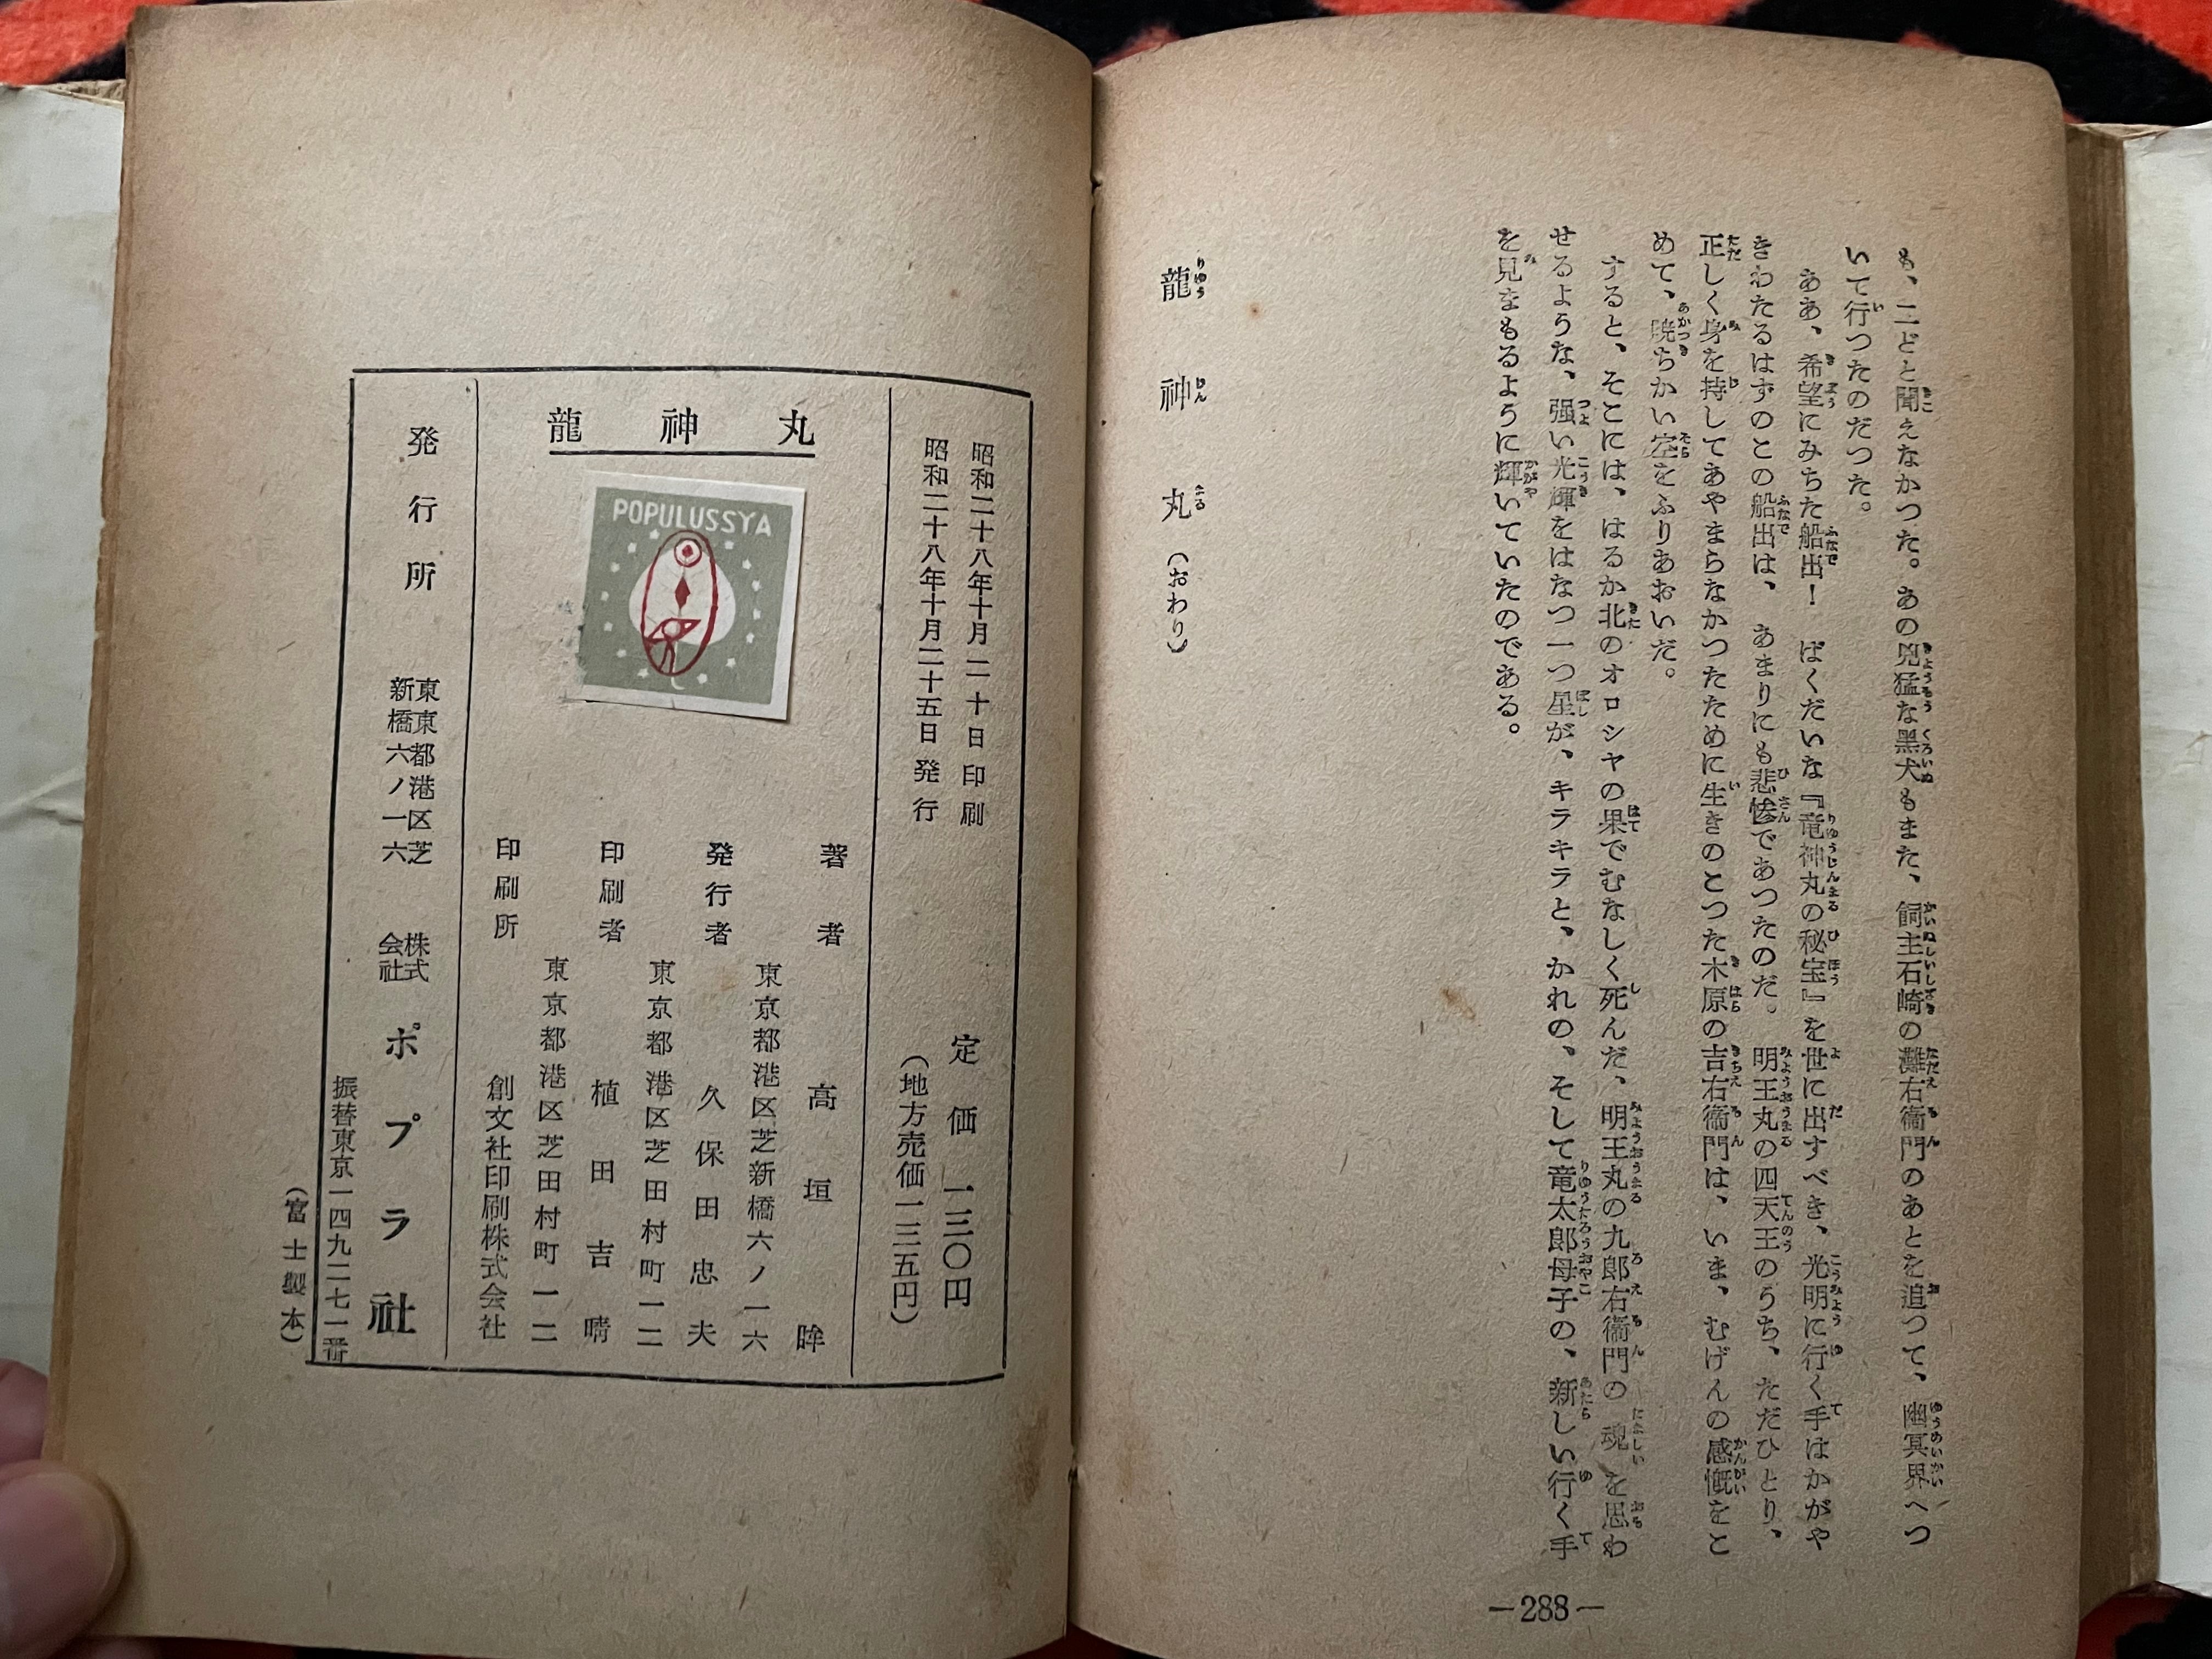 も、二どと聞えなかつた。あの兇猛な黒犬もまた、飼主石崎の灘右衞門のあとを追つて、幽冥界へつ
いて行つたのだつた。
ああ、希望にみちた船出！　ばくだいな『竜神丸の秘宝』を世に出すべき、光明に行く手はかがや
きわたるはずのこの船出は、あまりにも悲惨であつたのだ。明王丸の四天王のうち、ただひとり、
正しく身を持してあやまらなかつたために生きのこつた木原の吉右衞門は、いま、むげんの感慨をこ
めて、暁ちかい空をふりあおいだ。
すると、そこには、はるか北のオロシヤの果でむなしく死んだ、明王丸の九郎右衞門の魂を思わ
せるような、强い光輝をはなつ一つ星が、キラキラと、かれの、そして竜太郎母子の、新しい行く手
を見まもるように輝いていたのである。
龍神丸（おわり）
―288―
昭和二十八年十月二十日印刷
昭和二十八年十月二十五日発行
定価一三〇円
（地方売価一三五円）
龍神丸
POPULUSSYA
著者　高垣眸
東京都港区芝新橋六ノ一六
発行者　久保田忠夫
東京都港区芝田村町一二
印刷者　植田吉晴
東京都港区芝田村町一二
印刷所　創文社印刷株式会社
発行所
東京都港区芝
新橋六ノ一六
株式会社ポプラ社
振替東京一四九二七一番
（富士製本）